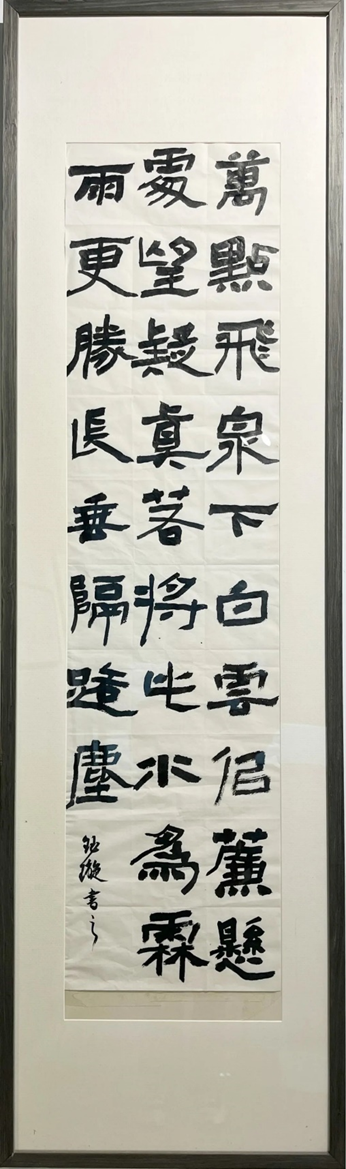 萬點飛泉下白雲佀薕懸
處望疑眞若將此水為霖
雨更勝長垂隔路塵
書之